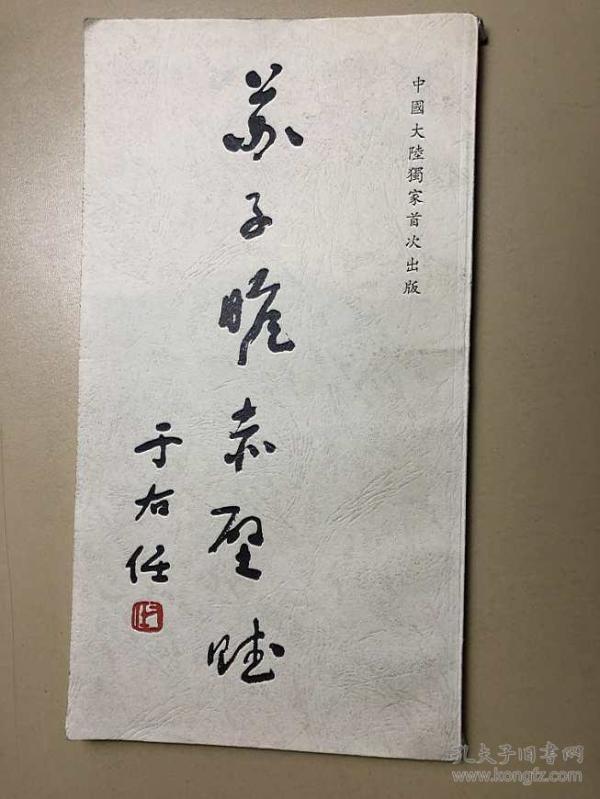 中國大陸獨家首次出版
苏子瞻赤壁赋
于右任
孔夫子旧书网
www.kongfz.com